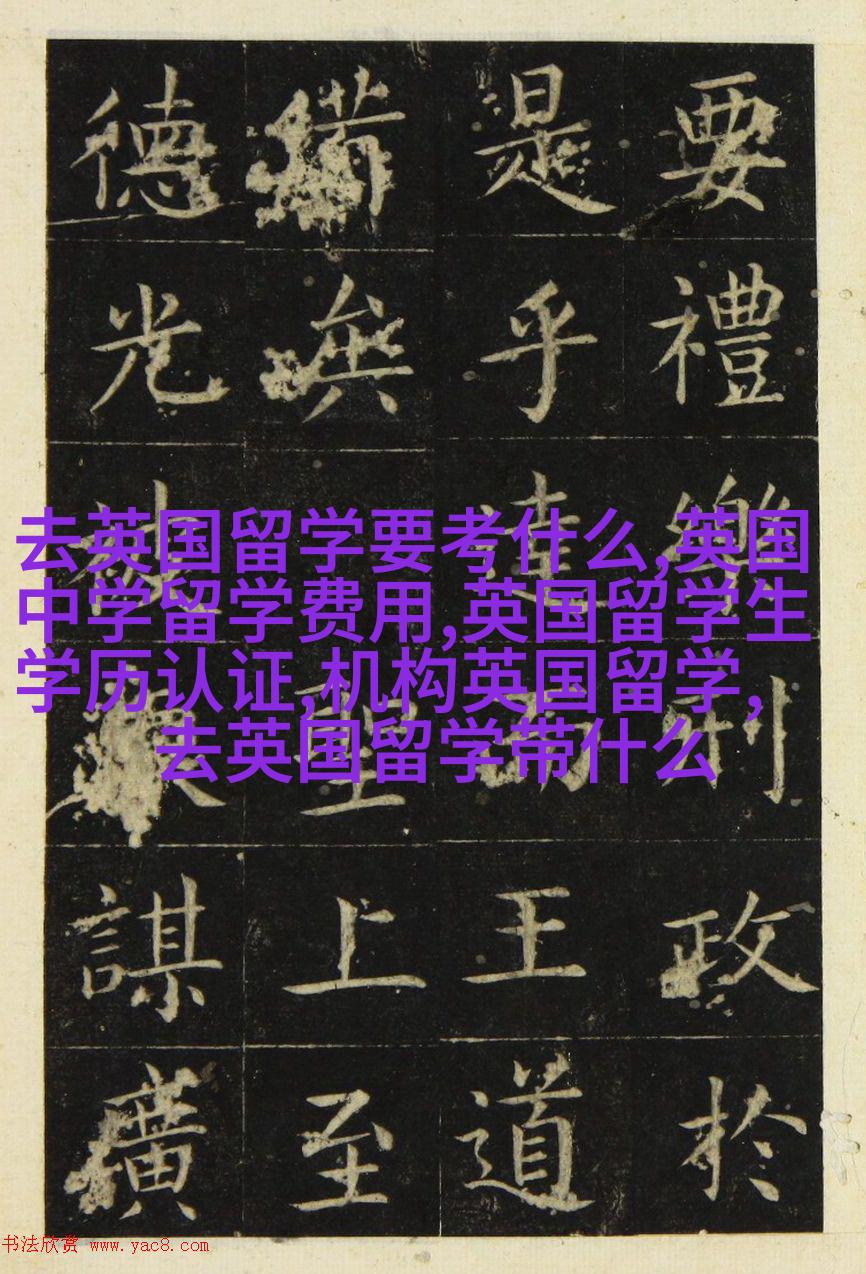 要禮樂刑政於
是乎達王道
聖上至
德光被謀廣
去英国留学要考什么,英国
中学留学费用,英国留学生
学历认证,机构英国留学,
去英国留学带什么
书法欣赏 www.yac8.com